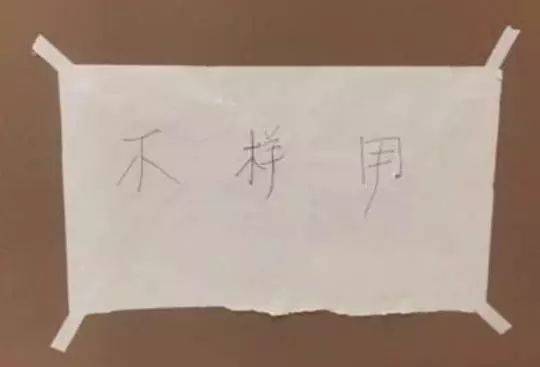 不样用